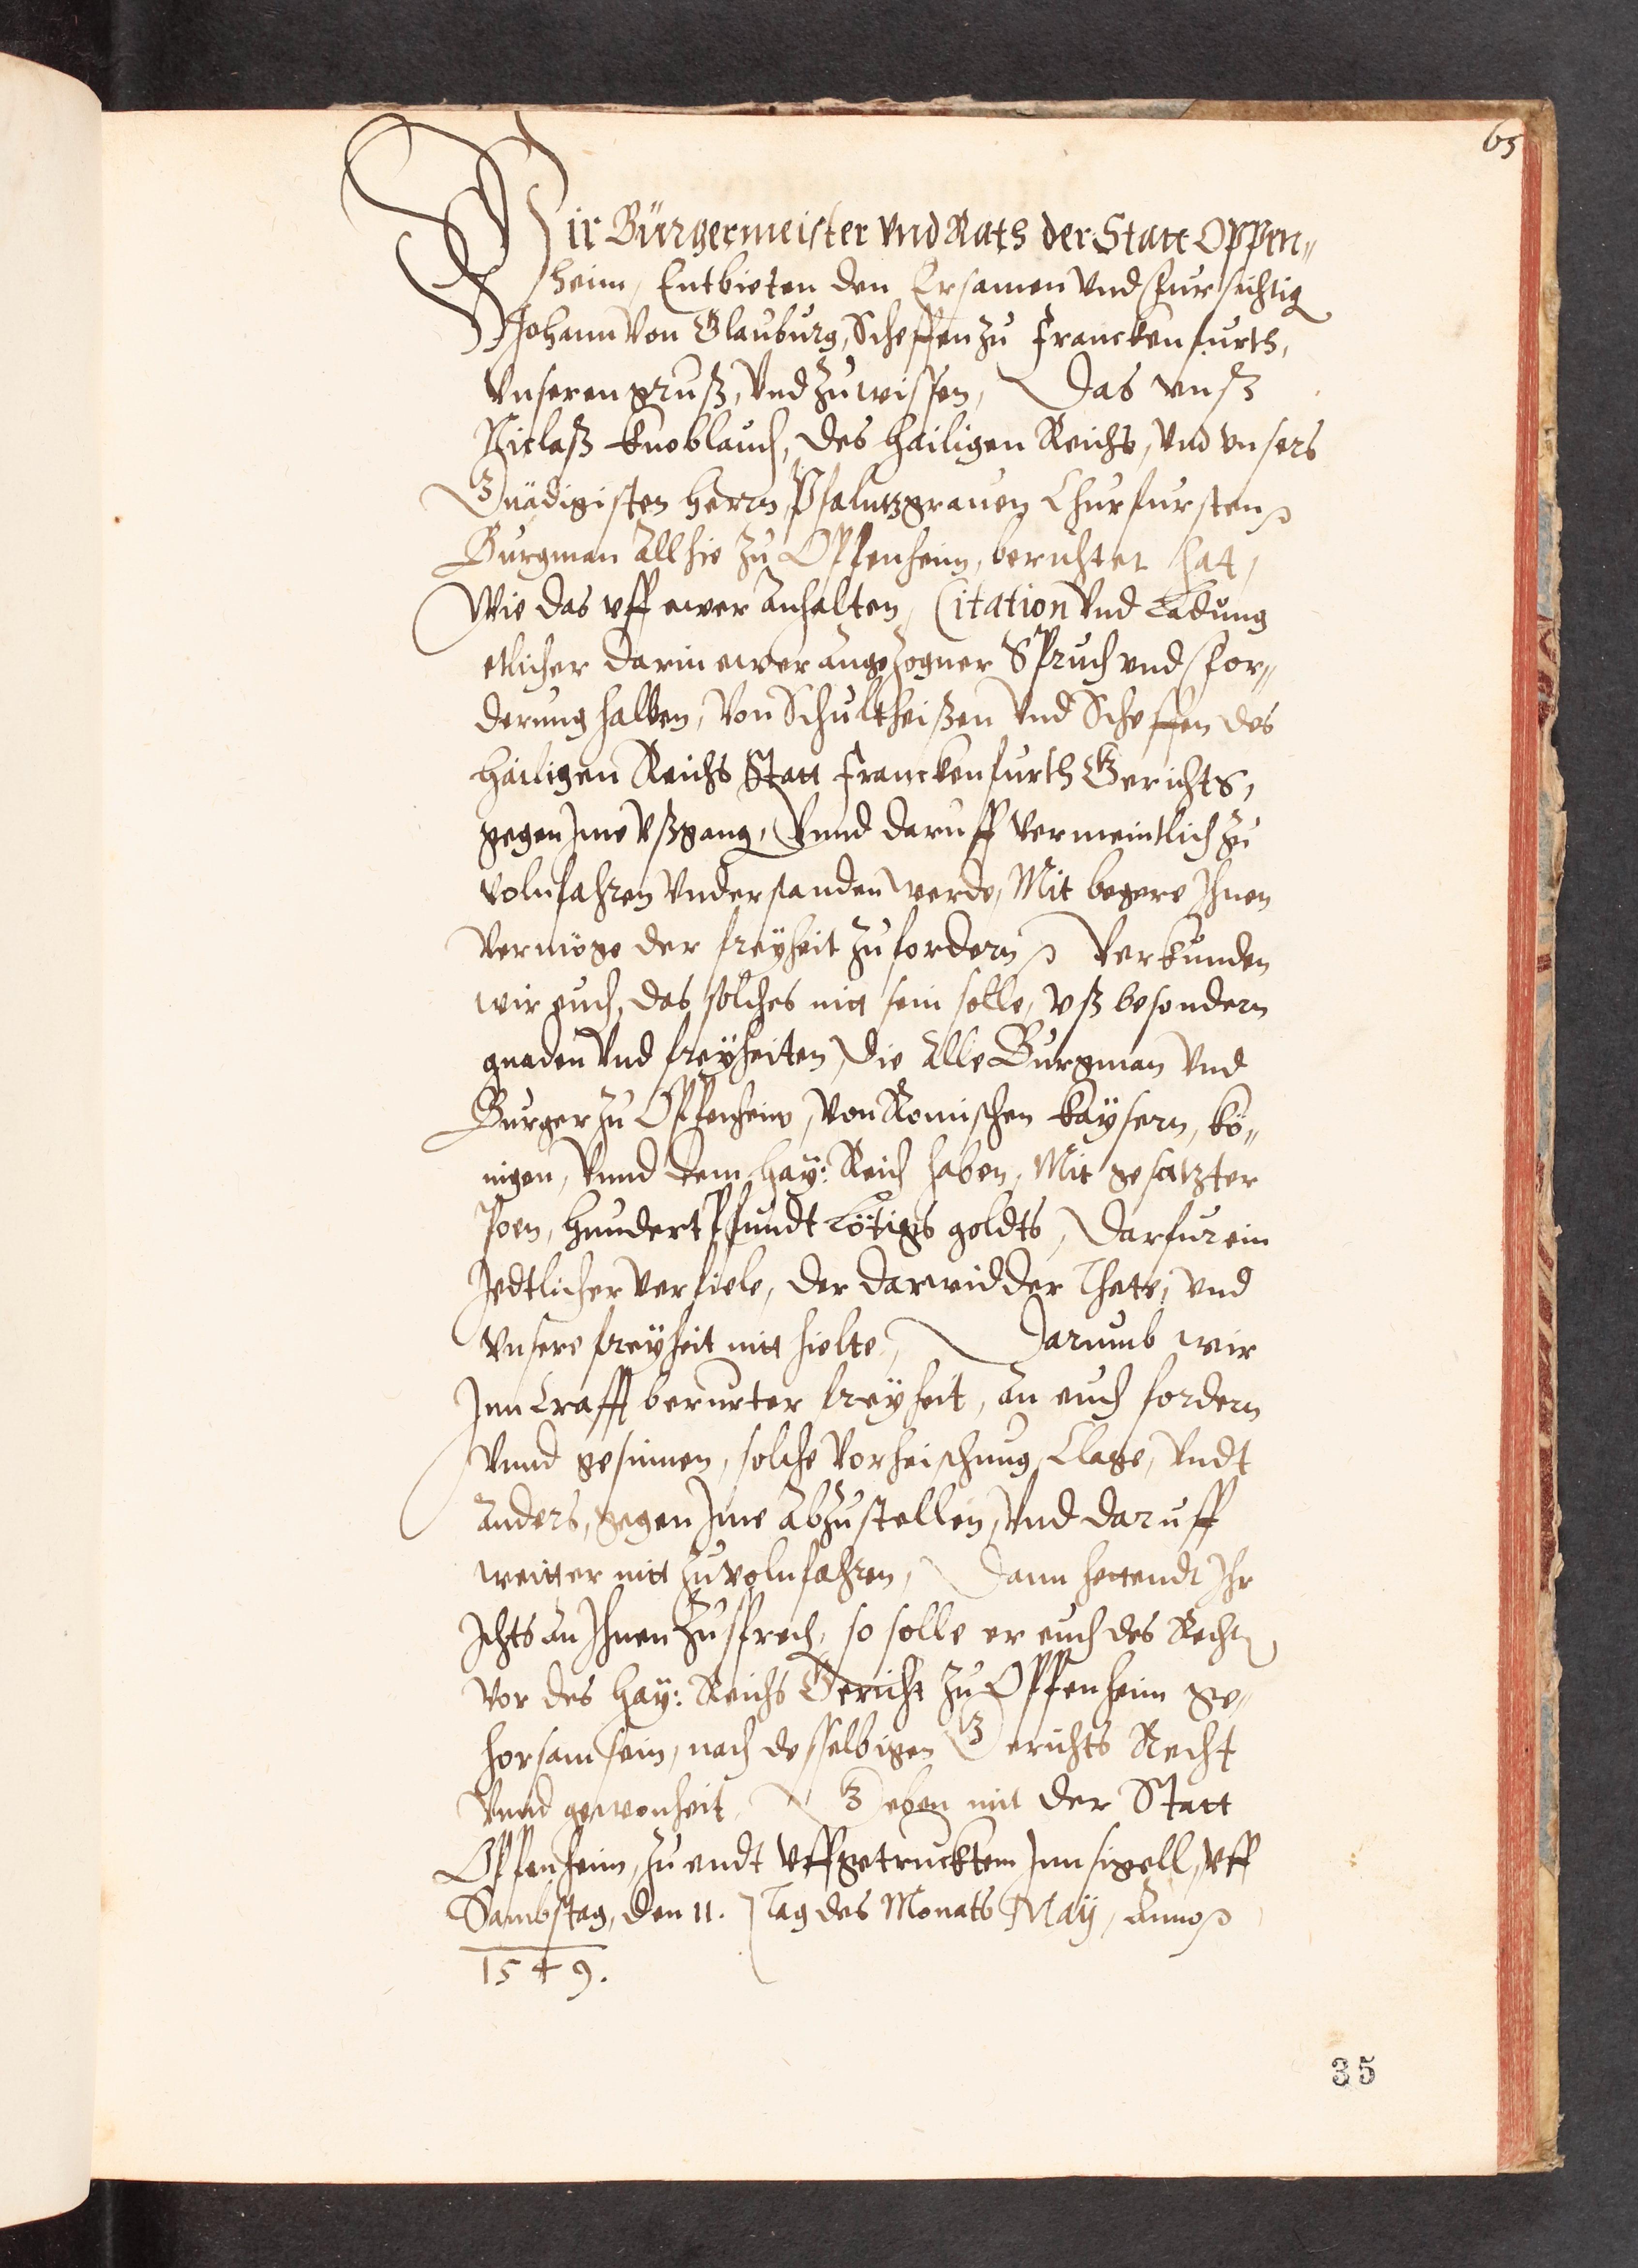 65
Wir Bürgermeister vnd Rath der Statt Oppen„
heim, Entbieten den Ersamen vnd fursichtig
Johann von Glauburg, Scheffen zu Franckenfurth,
vnseren gruß, vnd zuwissen, Das vnß
Niclaß Knoblauch, des hailigen Reichs, vnd vnsers
Gnädigisten herrn Pfaltzgrauen Churfursten
Burgman allhie zu Oppenheim, berichtet hat,
Wie das vff ewer anhalten, Citation vnd Ladung
etlicher darin ewer angezogner Spruch vnd for„
derung halben, von Schultheißen vnd Scheffen des
hailigen Reichs Statt Franckenfurth Gerichts,
gegen Ime vßgang, Vnnd daruff vermeintlich zu
volnfahren vnderstanden werde, Mit begere Ihnen
vermöge der freyheit zufordern Verkunden
wir euch, das solches nitt sein solle, vß besondern
gnaden vnd freyheiten, die alle Burgman vnd
Burger zu Oppenheim, von Romischen kaysern, kö„
nigen, Vnnd dem hay: Reich haben, Mit gesatzter
Poen, hundert pfundt Lötigs goldts, Darfur ein
Jedtlicher verfiele, der darwidder thete, vnd
vnsere freyheit nitt hielte, Darumb wir
Inn Crafft berurter freyheit, an euch fordern
Vnnd gesinnen, solche vorheischung, Clage, vndt
anders, gegen Ime abzustellen, vnd daruff
weitter nitt zuvolnfahren, Dann hettendt Ihr
Ichts an Ihnen zusprech, so solle er euch des Recht
vor des hay: Reichs Gericht zu Oppenheim ge„
horsam sein, nach desselbigen Gerichts Recht
Vnnd gewonheit, Geben mit der Statt
Oppenheim, zu endt vffgetrucktem Innsigell, vff
Sambstag, den 11. Tag des Monats May, Anno
1549.
35